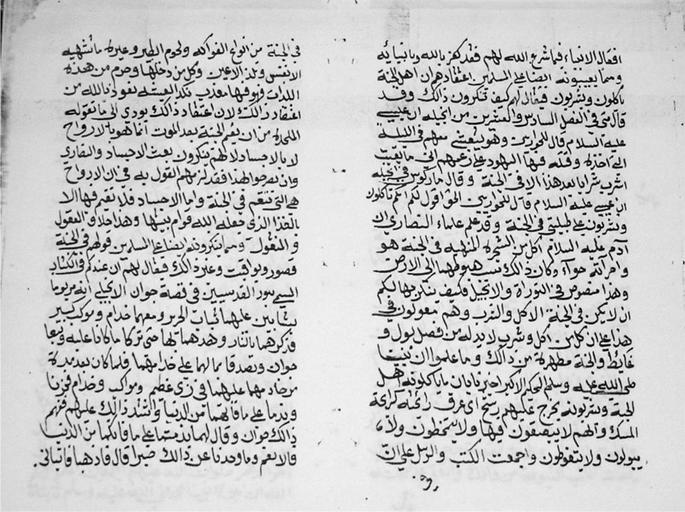 افعال الانبياء فما شرع الله لهم فقد كفر بالله وبانبيائه
ومما يعيبونه ايضا على المسلمين اعتقادهم ان اهل الجنة
ياكلون ويشربون فيقال لهم كيف تنكرون ذلك وقد
قال متى في الفصل السادس والعشرين من انجيله ان عيسى
عليه السلام قال للحواريين وهو يتعشى معهم في الليلة
التي اخذوه وقتله فيها اليهود على زعمهم اني ما بقيت
اشرب شرابا بعد هذا الا في الجنة وقال ماركوس في انجيله
ان عيسى عليه السلام قال للحواريين الحق اقول لكم انكم تاكلون
وتشربون على طبلتي في الجنة وقد علم علماء النصارى ان
آدم عليه السلام اكل من الشجرة المنهية في الجنة هو
وامرأته حواء وكان ذلك سبب هبوطهما الى الارض
وهذا منصوص في التوراة والانجيل فكيف ينكر جهالكم
ان لا يكون في الجنة الاكل والشرب وهم معولون في
هذا على ان كل من اكل وشرب لا بد له من فضل بول و
غايط والجنة مطهرة من ذلك وما علموا ان نبينا
صلى الله عليه وسلم النبي الاكبر اخبرنا بان ما ياكلونه اهل
الجنة ويشربونه يخرج عليهم رشح اي عرق رائحته كرائحة
المسك وانهم لا يبصقون فيها ولا يتمخطون ولا
يبولون ولا يتغوطون واجمعت الكتب والرسل على ان
في الجنة من انواع الفواكه ولحوم الطير وغيره ما تشتهيه
الانفس وتلذ الاعين وكل من دخلها وحرم من هذه
اللذات فهو فيها معذب نكد العيشة نعوذ بالله من
اعتقاد ذلك لان اعتقاد ذلك يودي الى ما تقوله
الملحدة من ان نعيم الجنة بعد الموت انما هو بالارواح
لا بالاجساد لانهم ينكرون بعث الاجساد والنصارى
وان لم يصرحوا بهذا فقد لزمهم القول به في ان الارواح
هي التي تتنعم في الجنة واما الاجساد فلا بقا فيها الا
بالغذا الذي جعله الله قوام بنيتها وهذا خلاف العقول
والمنقول ومما ينكرونه ايضا على المسلمين قولهم في الجنة
قصور ويواقيت وغير ذلك فيقال لهم ان عندكم في الكتاب
المسمى بنور القديسين في قصة جوان الانجيلي انه مر يوما
بشابين عليهما ثياب الحرير ومعهما خدام وموكب كبير
فذكرهما بالنار وهددهما بها حتى تركا ما كانا عليه وتبعا
جوان وتصدقا بمالهما على خدامهما فلما كان بعد مدة
مر خادمهما عليهما في زي عظيم ومواكب وخدام فحزنا
وندما على ما فاتهما من الدنيا واشتد ذلك عليهم ففهم
ذلك جوان وقال لهما ندمتما على ما فاتكما من الدنيا
قالا نعم وما وجدنا عن ذلك صبرا قال فاذهبا واتياني